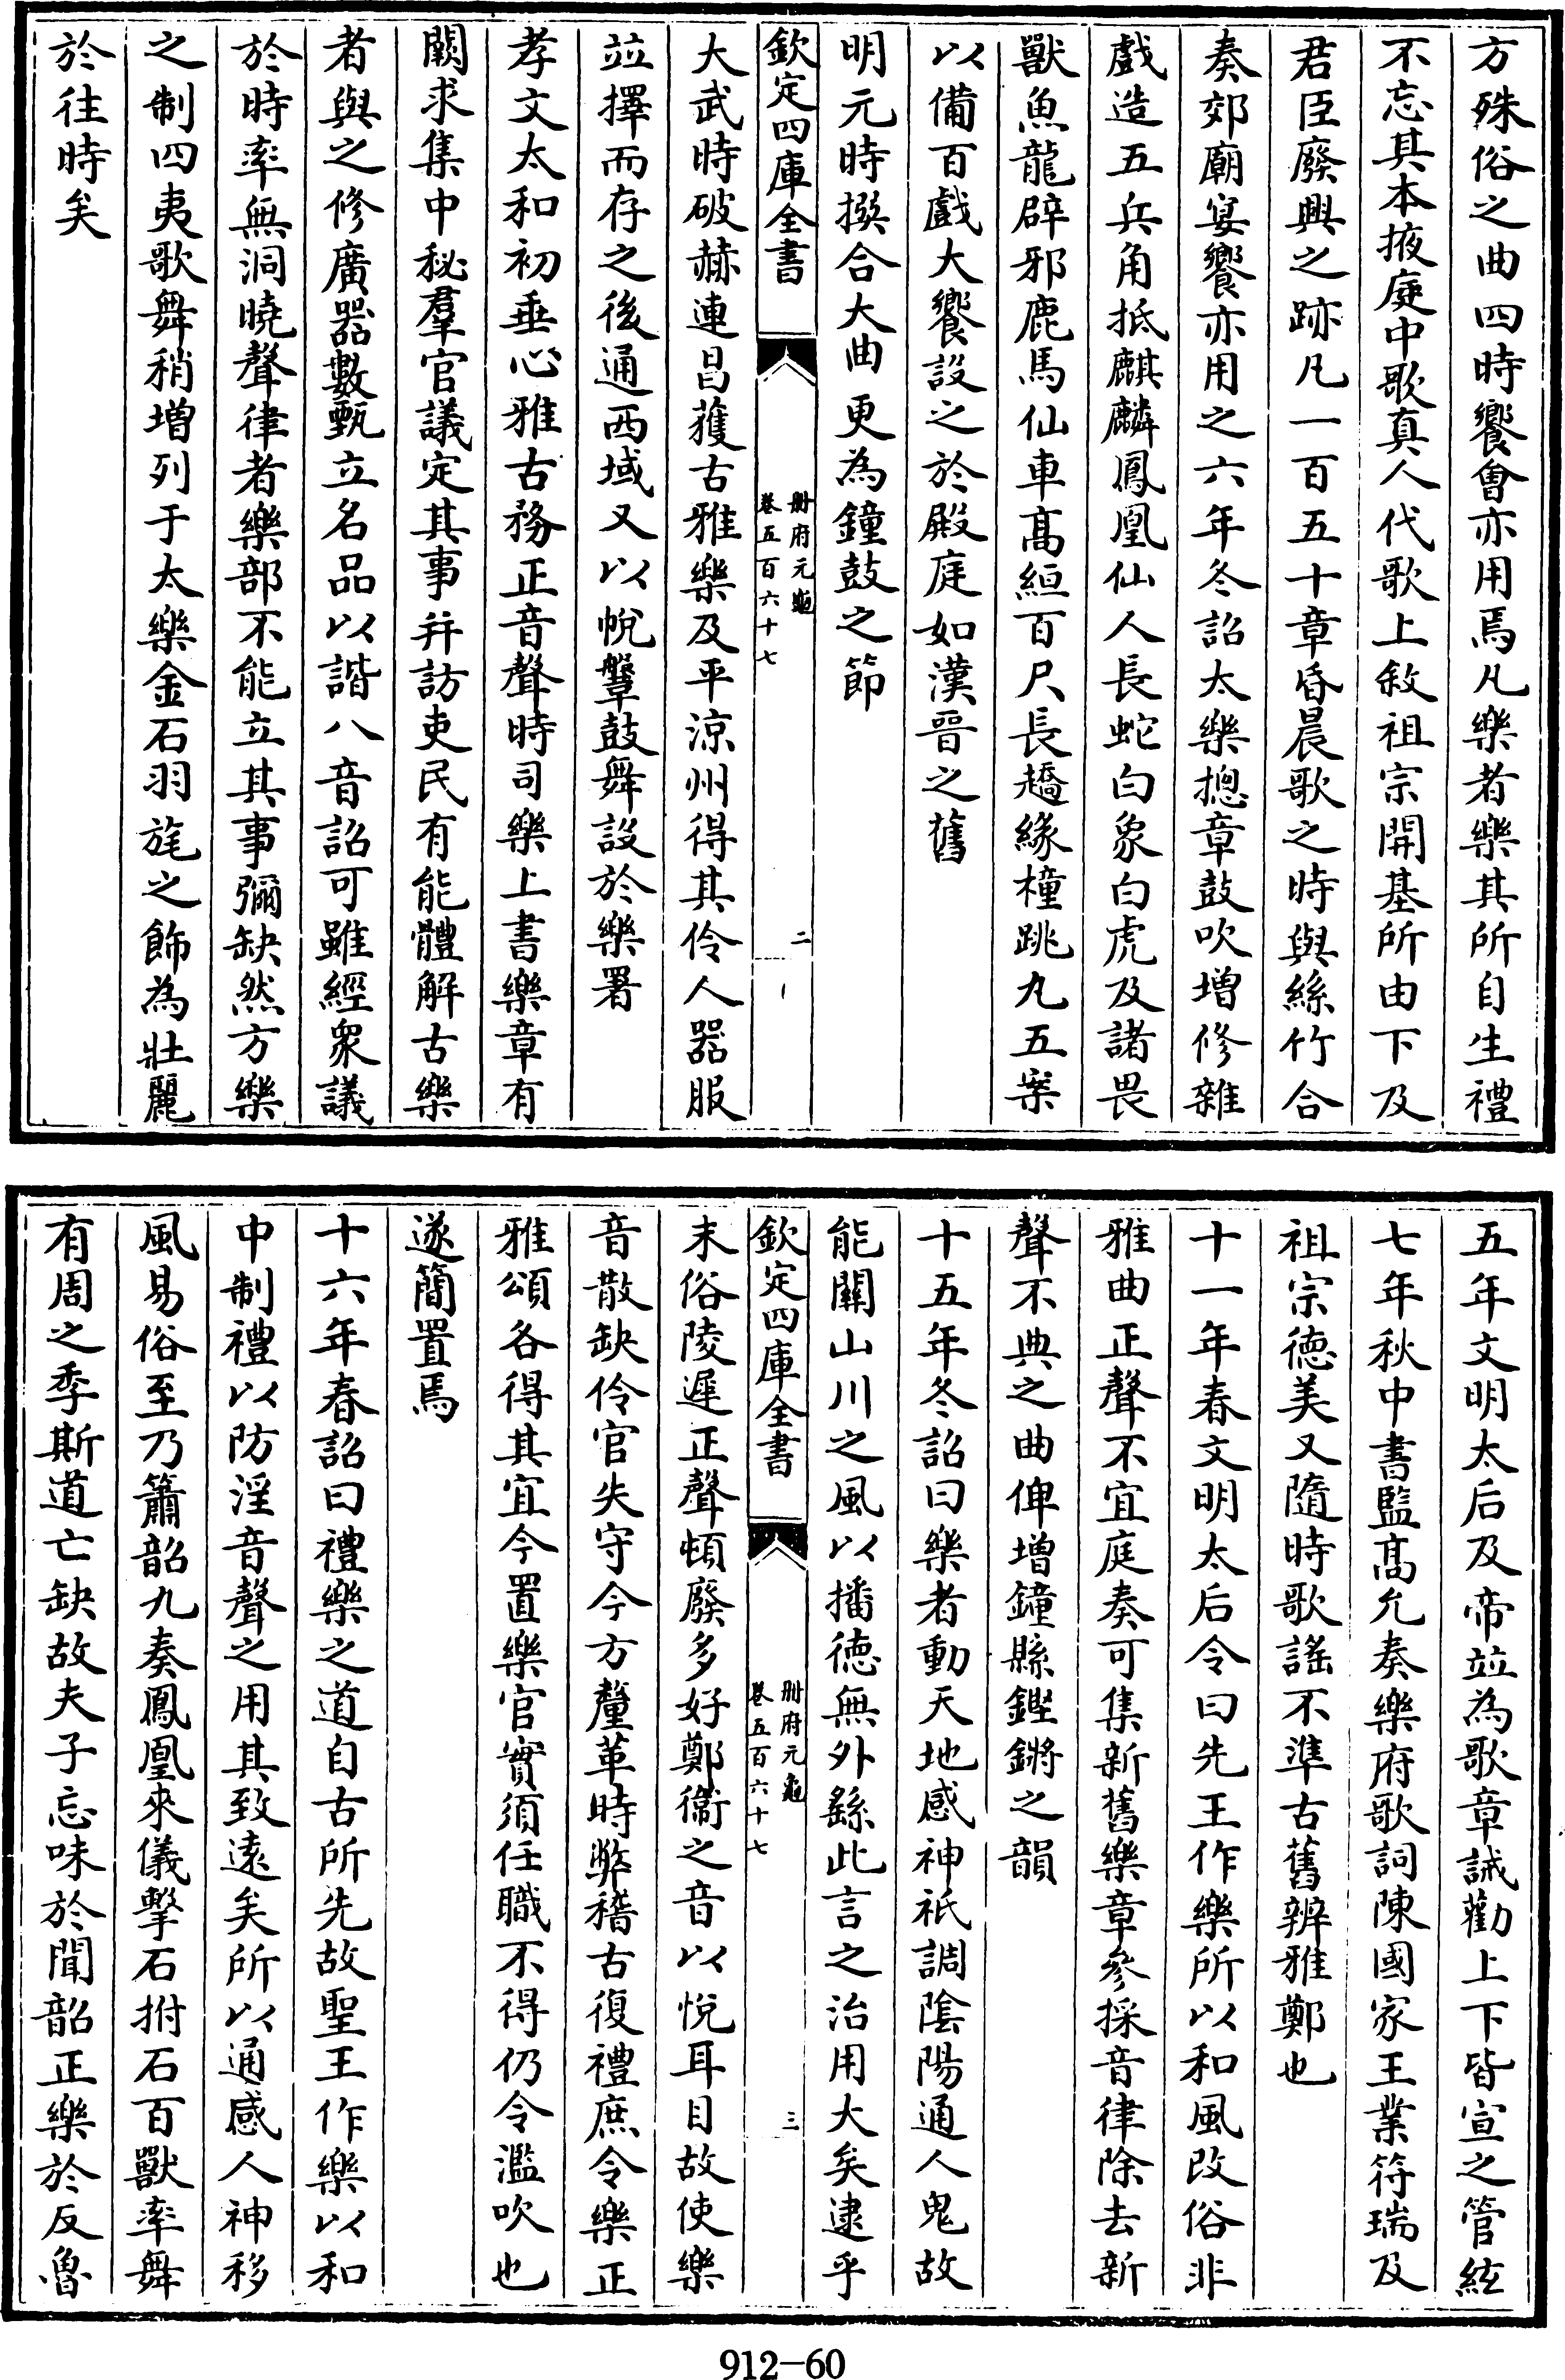 方殊俗之曲四時饗會亦用焉凡樂者樂其所自生禮
不忘其本掖庭中歌真人代歌上敘祖宗開基所由下及
君臣廢興之跡凡一百五十章昏晨歌之時與絲竹合
奏郊廟宴饗亦用之六年冬詔太樂摠章鼓吹增修雜
戲造五兵角抵麒麟鳳凰仙人長蛇白象白虎及諸畏
獸魚龍辟邪鹿馬仙車髙絙百尺長趫緣橦跳丸五案
以備百戲大饗設之於殿庭如漢晉之舊
明元時撰合大曲更為鐘鼓之節
欽定四庫全書
册府元龜
卷五百六十七
二
大武時破赫連昌獲古雅樂及平涼州得其伶人器服
竝擇而存之後通西域又以悅鼙鼓舞設於樂署
孝文太和初垂心雅古務正音聲時司樂上書樂章有
闕求集中秘羣官議定其事并訪吏民有能體解古樂
者與之修廣器數甄立名品以諧八音詔可雖經衆議
於時率無洞曉聲律者樂部不能立其事彌缺然方樂
之制四夷歌舞稍増列于太樂金石羽旄之飾為壯麗
於往時矣
五年文明太后及帝竝為歌章誡勸上下皆宣之管絃
七年秋中書監髙允奏樂府歌詞陳國家王業符瑞及
祖宗德美又隨時歌謡不準古舊辨雅鄭也
十一年春文明太后令曰先王作樂所以和風改俗非
雅曲正聲不宜庭奏可集新舊樂章參採音律除去新
聲不典之曲俾增鐘縣鏗鏘之韻
十五年冬詔曰樂者動天地感神祇調陰陽通人鬼故
能關山川之風以播德無外繇此言之治用大矣逮乎
欽定四庫全書
册府元龜
卷五百六十七
三
末俗陵遲正聲頓廢多好鄭衞之音以悅耳目故使樂
音散缺伶官失守今方釐革時弊稽古復禮庶令樂正
雅頌各得其宜今置樂官實須任職不得仍令濫吹也
遂簡置焉
十六年春詔曰禮樂之道自古所先故聖王作樂以和
中制禮以防淫音聲之用其致遠矣所以通感人神移
風易俗至乃簫韶九奏鳳凰來儀擊石拊石百獸率舞
有周之季斯道亡缺故夫子忘味於聞韶正樂於反魯
912-60